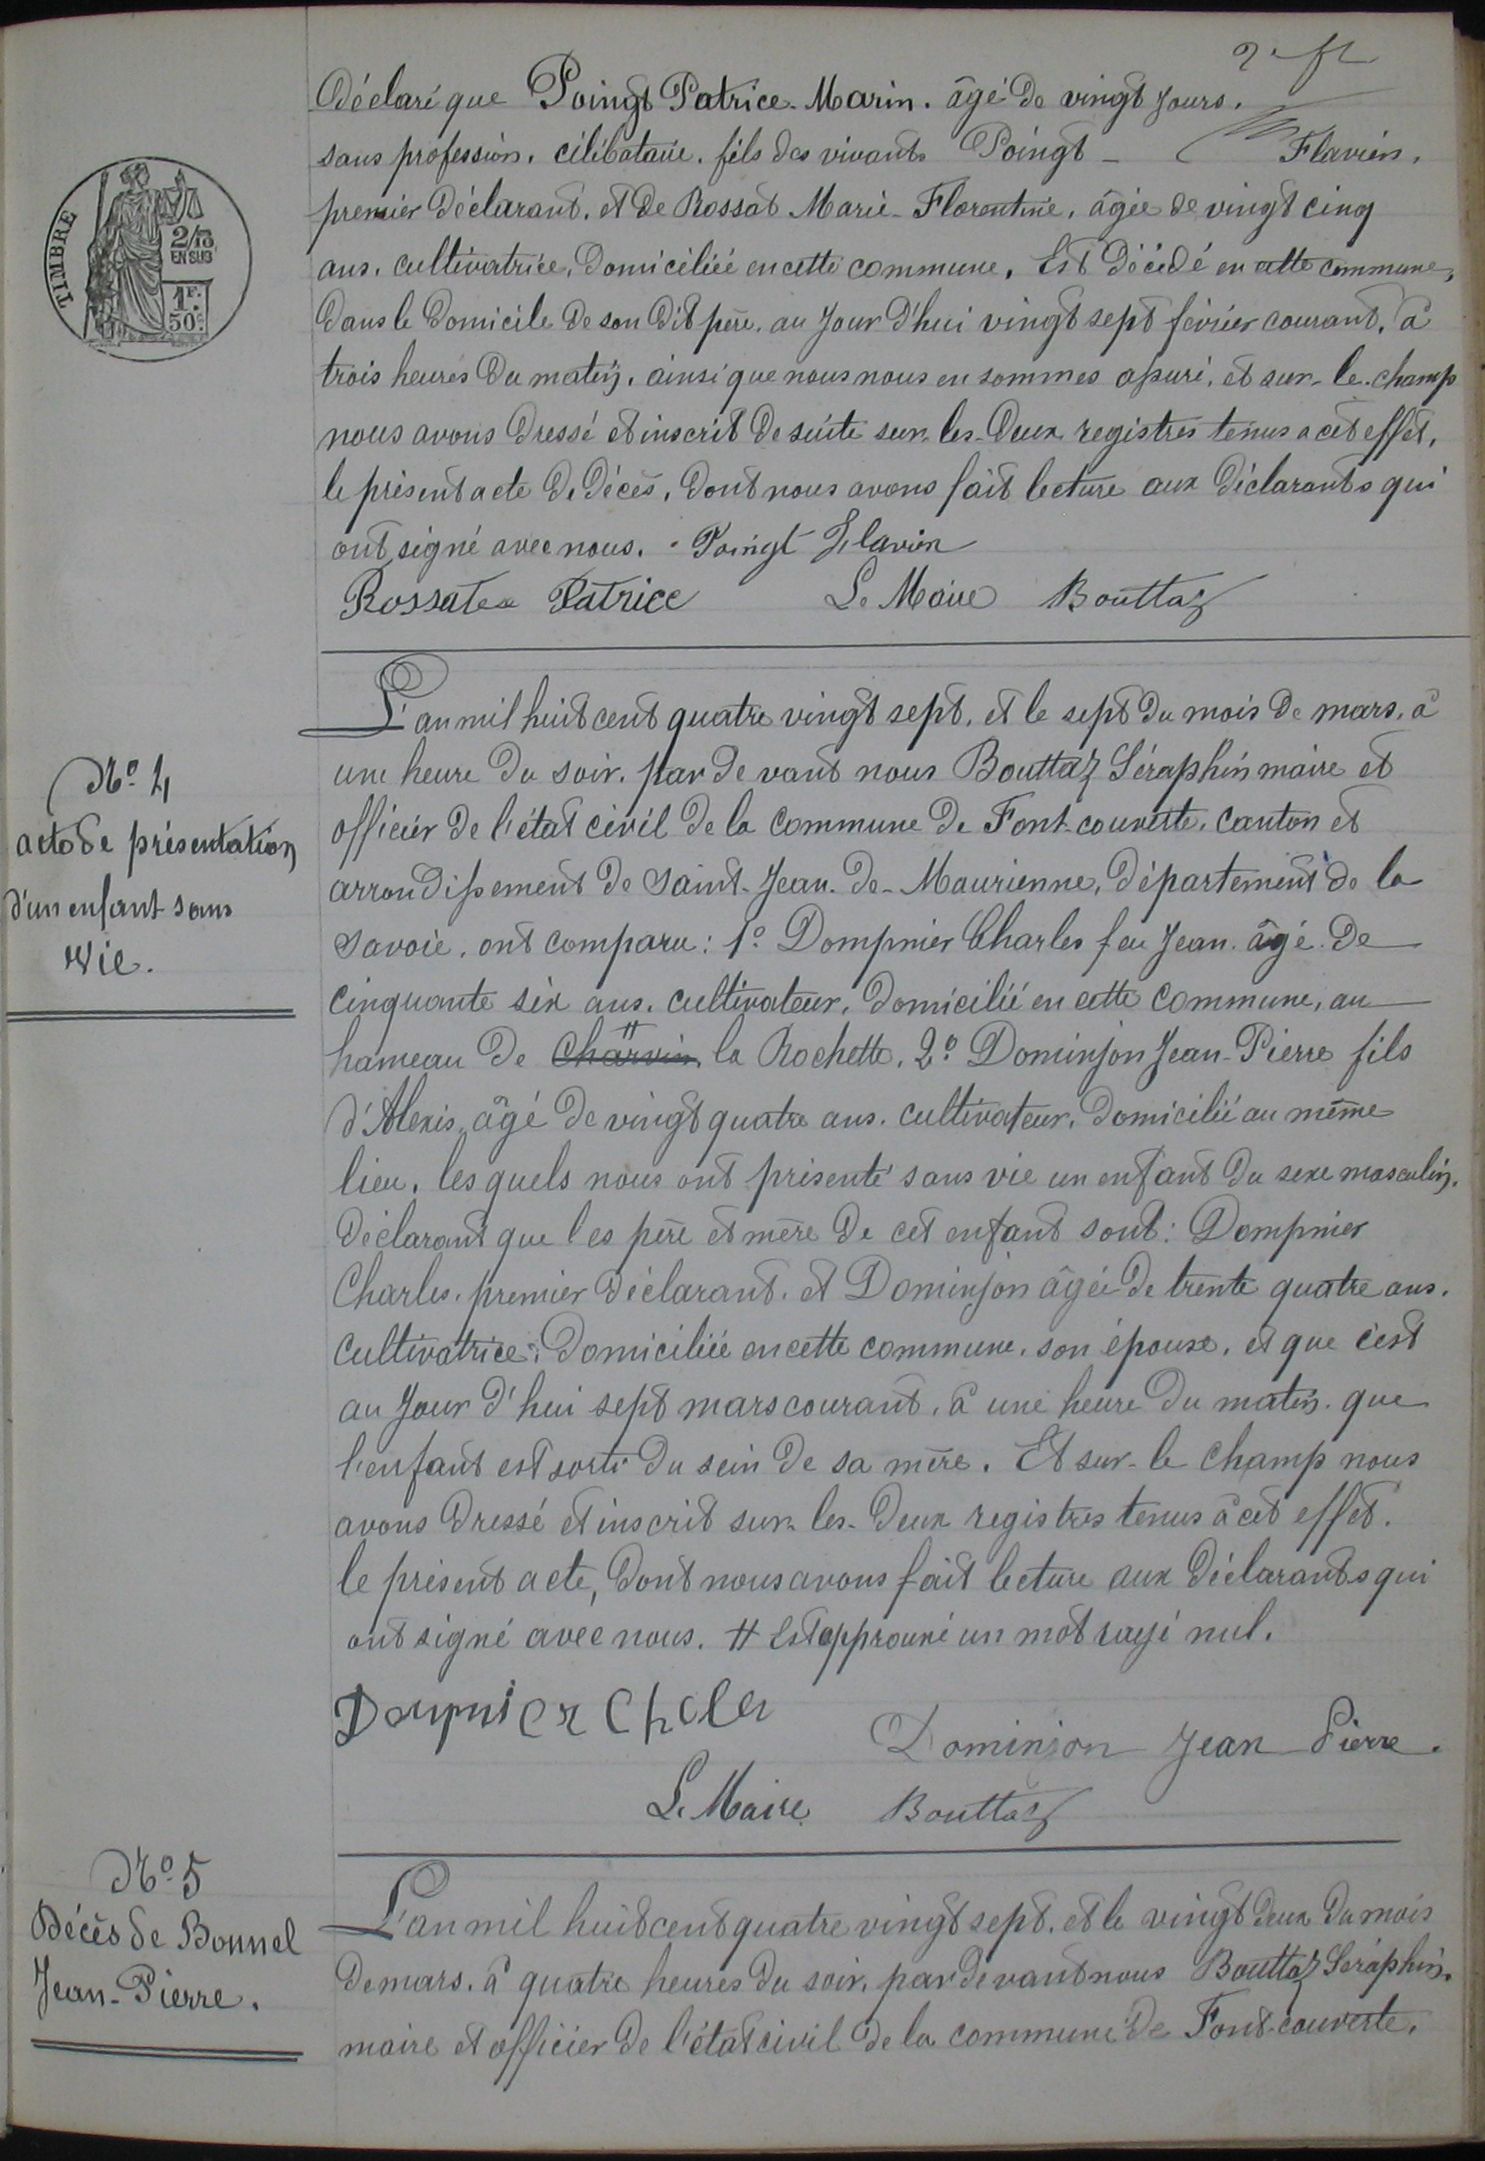 2e ft
Déclaré que Poingt Patrice-Marin. âgé de vingt jours.
sans profession. célibataire. fils des vivants Poingt - Flavien,
premier déclarant, et de Rossat Marie-Florentine, âgée de vingt cinq
ans. cultivatrice, domiciliée en cette commune. Est décédé en cette commune,
dans le domicile de son dit père, au jour d'hui vingt sept février courant, à
trois heures du matin. ainsi que nous nous en sommes assuré, et sur-le-champ
nous avons dressé et inscrit de suite sur les deux registres tenus a cet effet,
le présent acte de décès, dont nous avons fait lecture aux déclarants qui
ont signé avec nous. Poingt Flavien
Rossat Patrice Le Maire Bouttaz
TIMBRE
2/10
EN SUS
1F.
50c.
L'an mil huit cent quatre vingt sept, et le sept du mois de mars, à
une heure du soir, par de vant nous Bouttaz Séraphin maire et
officier de l'état civil de la commune de Font-couverte, canton et
arrondissement de Saint-Jean-de-Maurienne, département de la
Savoie, ont comparu: 1º Dompnier Charles feu Jean âgé de
cinquante six ans, cultivateur, domicilié en cette commune, au
hameau de Charvin la Rochette, 2º Dominjon Jean-Pierre fils
d'Alexis, âgé de vingt quatre ans, cultivateur, domicilié au même
lieu, les quels nous ont présenté sans vie un enfant du sexe masculin,
déclarant que les père et mère de cet enfant sont: Dompnier
Charles, premier déclarant, et Dominjon âgée de trente quatre ans,
cultivatrice, domiciliée en cette commune, son épouse, et que c'est
au jour d'hui sept mars courant, à une heure du matin que
l'enfant est sorti du sein de sa mère. Et sur-le champ nous
avons dressé et inscrit sur les deux registres tenus à cet effet.
le présent acte, dont nous avons fait lecture aux déclarants qui
ont signé avec nous. # Est approuvé un mot rayé nul.
Nº 4
acte de présentation
d'un enfant sans
vie.
Dompnier Chales
Dominjon Jean Pierre.
Le Maire Bouttaz
Nº 5
Décès de Bonnel
Jean-Pierre.
L'an mil huit cent quatre vingt sept, et le vingt deux du mois
de mars, à quatre heures du soir, par devant nous Bouttaz Séraphin,
maire et officier de l'état civil de la commune de Font-couverte,